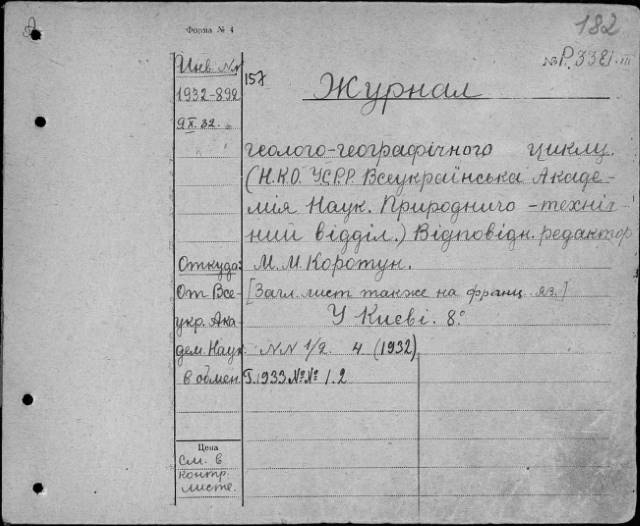 Форма № 4
182
№ Р.3321.III
Инв. №
157
Журнал
1932-892
9 X 32.
геолого-географічного циклу.
(Н.К.О. УСРР. Всеукраїнська Акаде-
мія Наук. Природничо-техніч
ний відділ.) Відповідн. редактор
Откуда: М. М. Коротун.
От Все- [Загл. лист также на франц. яз.]
укр. Ака- У Києві. 8°
дем. Наук. NN 1/2. 4 (1932)
в обмен Г. 1933 №№ 1. 2
Цена
См. в
контр.
листе.